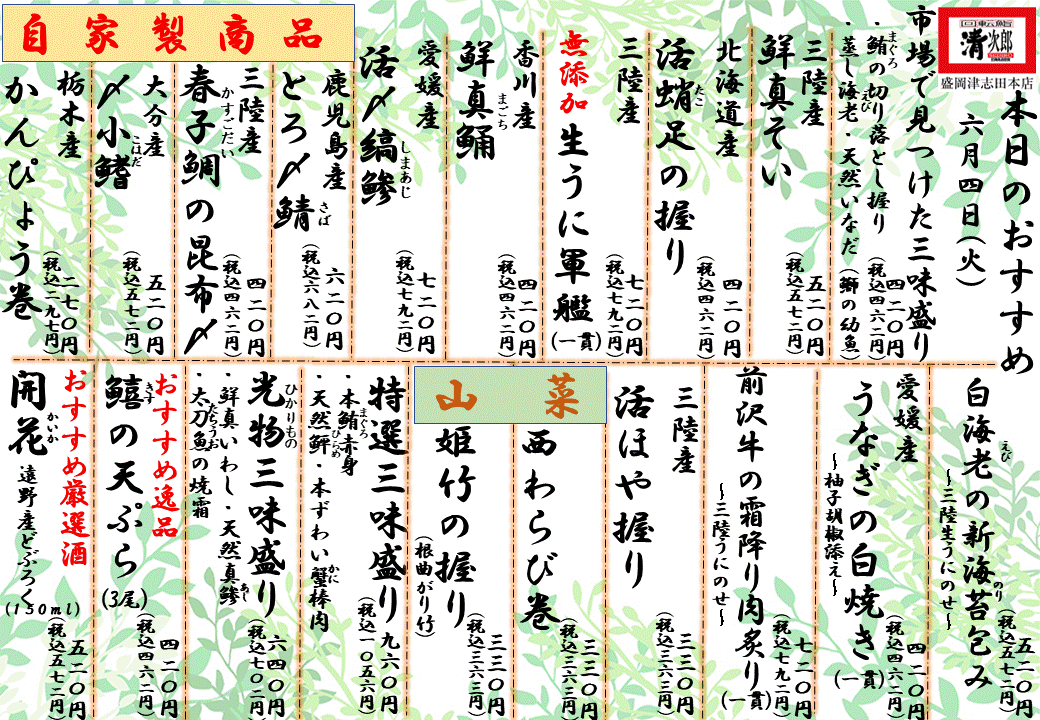 回転鮨
清次郎
盛岡津志田本店
本日のおすすめ
六月四日(火)
市場で見つけた三味盛り
・鮪の切り落とし握り
まぐろ
・蒸し海老・天然いなだ(鰤の幼魚)
えび
四二〇円
(税込四六二円)
三陸産
鮮真そい
五二〇円
(税込五七二円)
北海道産
活蛸足の握り
たこ
四二〇円
(税込四六二円)
三陸産
無添加生うに軍艦
(一貫)
七二〇円
(税込七九二円)
香川産
鮮真鯒
まごち
四二〇円
(税込四六二円)
愛媛産
活〆縞鯵
しまあじ
七二〇円
(税込七九二円)
自家製商品
鹿児島産
とろ〆鯖
さば
六二〇円
(税込六八二円)
三陸産
春子鯛の昆布〆
かすごだい
四二〇円
(税込四六二円)
大分産
〆小鰭
こはだ
五二〇円
(税込五七二円)
栃木産
かんぴょう巻
二七〇円
(税込二九七円)
白海老の新海苔包み
えび
のり
~三陸生うにのせ~
五二〇円
(税込五七二円)
愛媛産
うなぎの白焼き
(一貫)
~柚子胡椒添え~
四二〇円
(税込四六二円)
前沢牛の霜降り肉炙り
(一貫)
~三陸うにのせ~
七二〇円
(税込七九二円)
三陸産
活ほや握り
三三〇円
(税込三六三円)
山菜
西わらび巻
三三〇円
(税込三六三円)
姫竹の握り
(根曲がり竹)
三三〇円
(税込三六三円)
特選三味盛り
・本鮪赤身
まぐろ
・天然鮃・本ずわい蟹棒肉
ひらめ
かに
九六〇円
(税込一〇五六円)
光物三味盛り
ひかりもの
・鮮真いわし・天然真鯵
あじ
・太刀魚の焼霜
たちうお
六四〇円
(税込七〇二円)
おすすめ逸品
鱚の天ぷら
きす
(3尾)
四二〇円
(税込四六二円)
おすすめ厳選酒
開花
かいか
遠野産どぶろく
(150ml)
五二〇円
(税込五七二円)